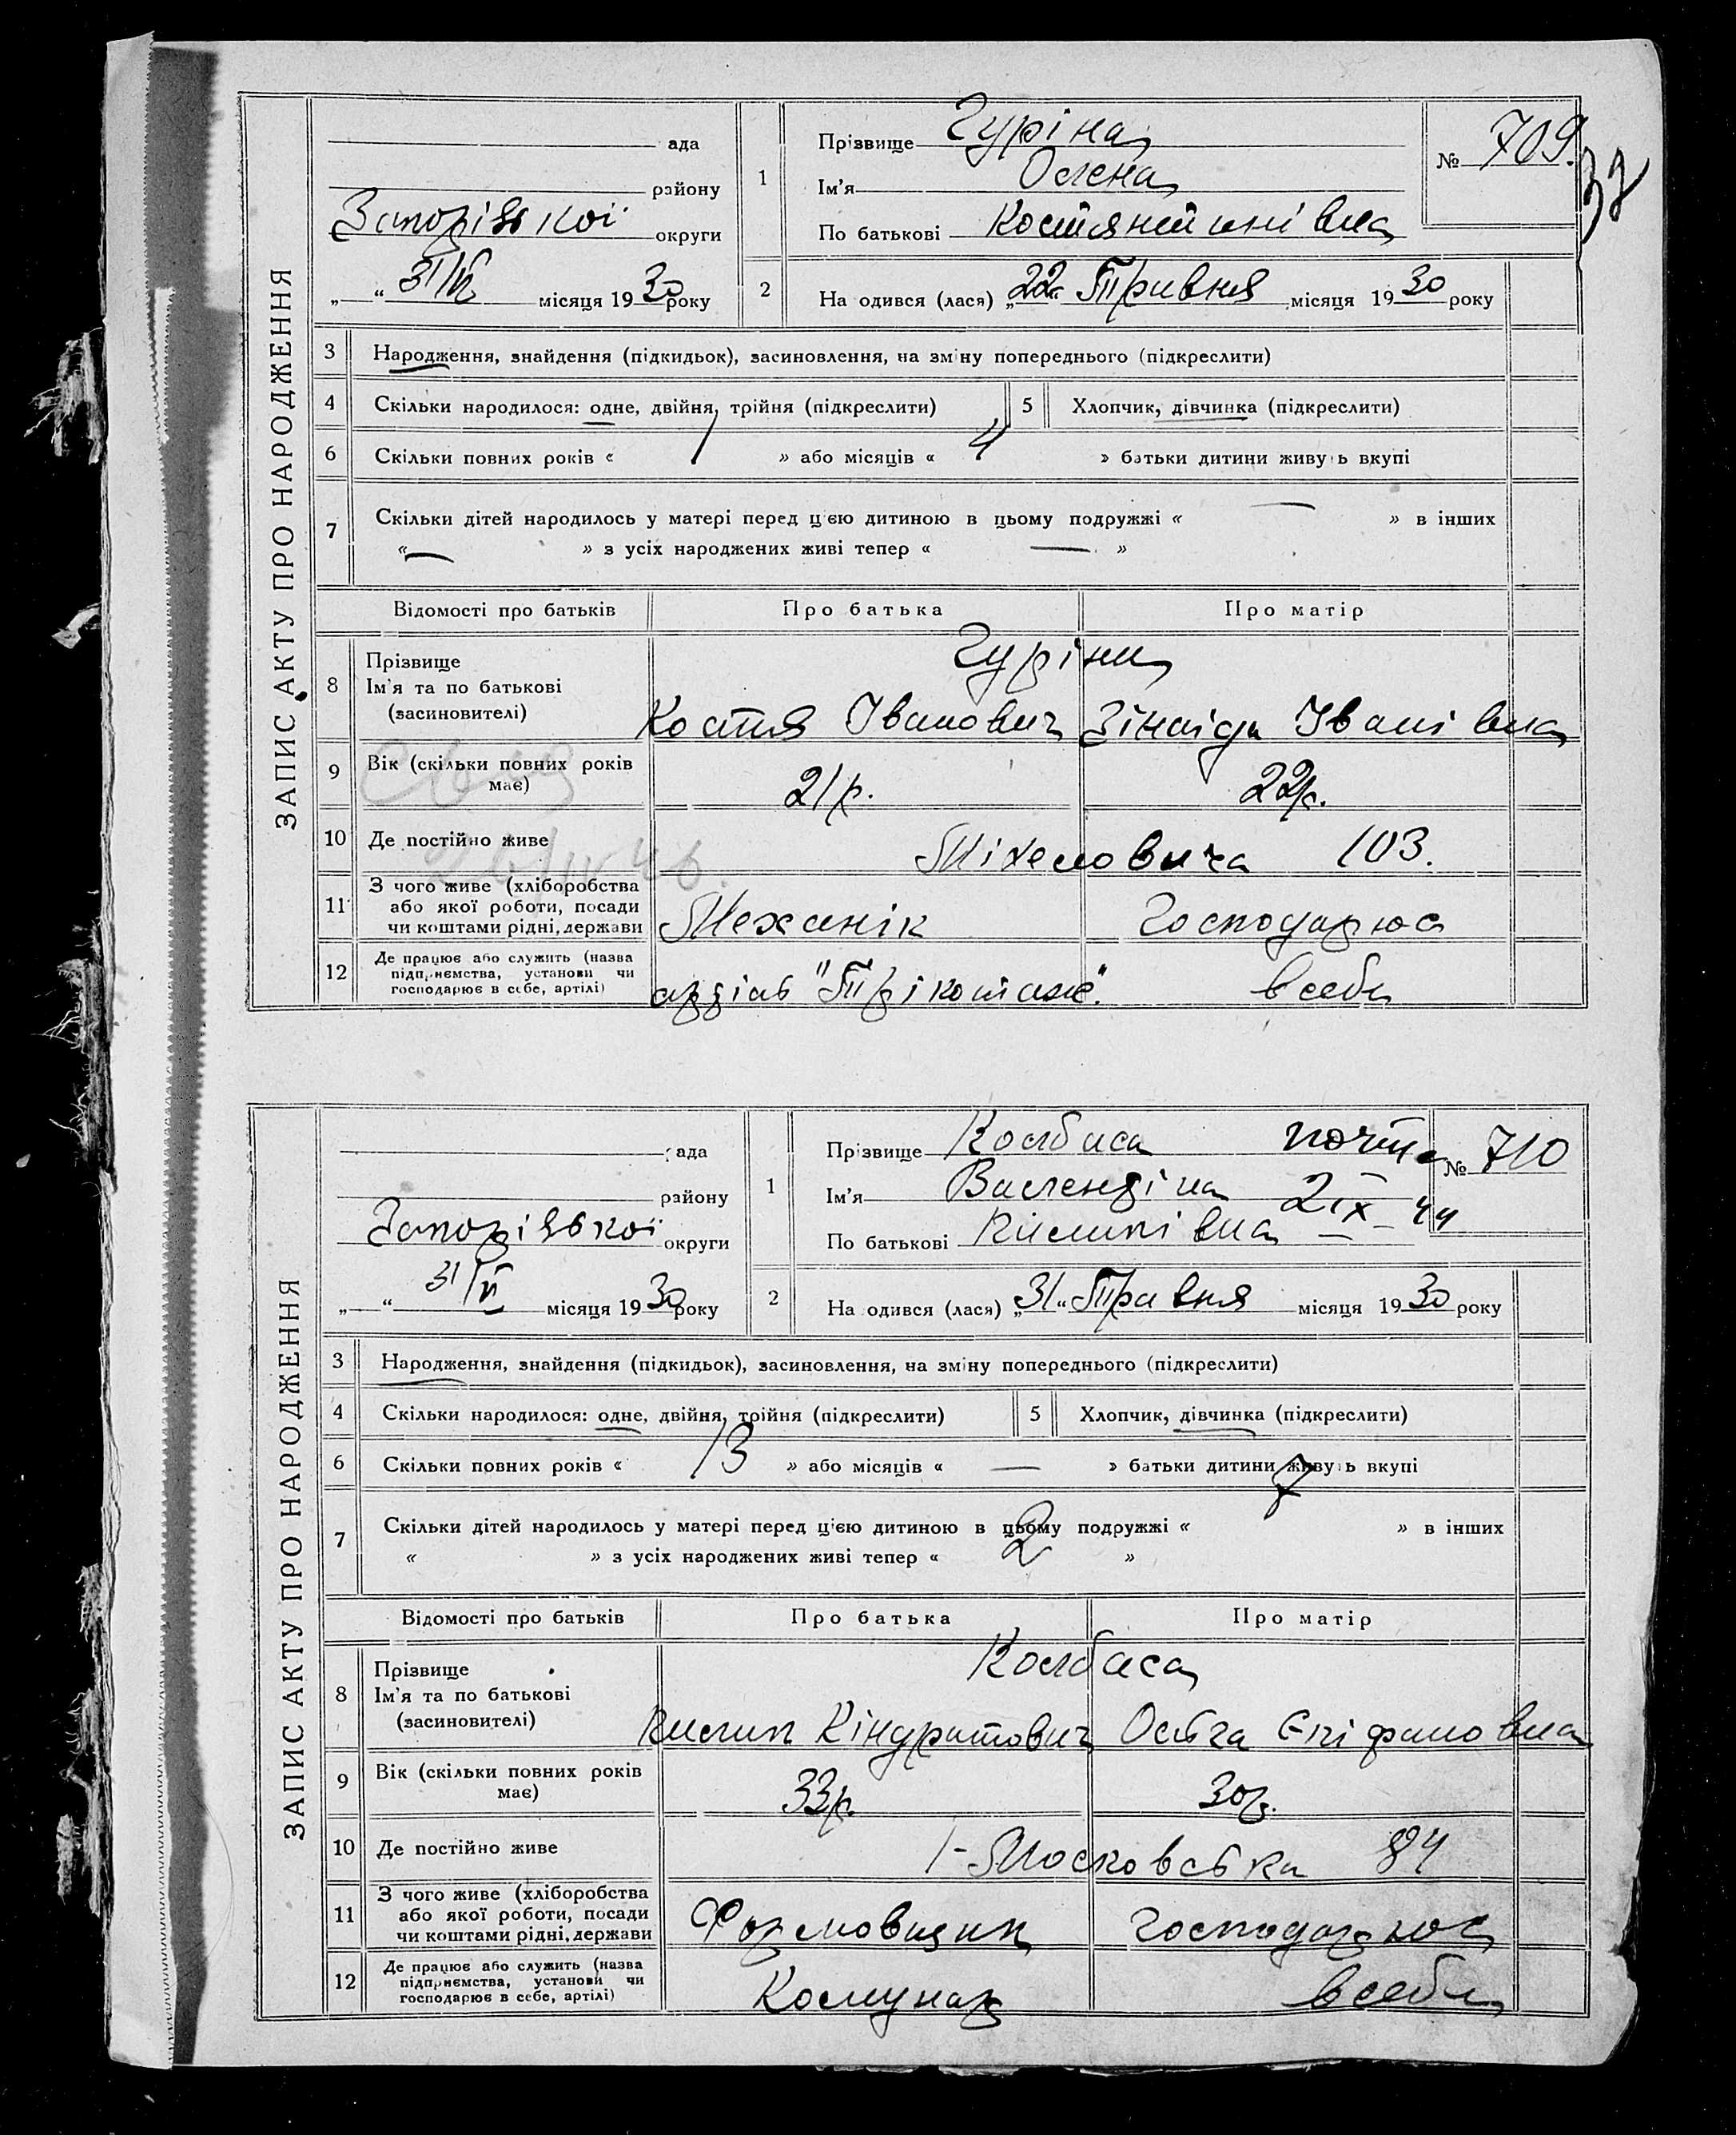 ЗАПИС АКТУ ПРО НАРОДЖЕННЯ
ада
району
Запорізької округи
„ “ 31/V місяця 1930 року
1 Прізвище Гуріна
Ім'я Олена
По батькові Костянтинівна
№ 709.
32
2 На одився (лася) „22“ Травня місяця 1930 року
3 Народження, знайдення (підкидьок), засиновлення, на зміну попереднього (підкреслити)
4 Скільки народилося: одне, двійня, трійня (підкреслити) 5 Хлопчик, дівчинка (підкреслити)
6 Скільки повних років « 1 » або місяців « 4 » батьки дитини живу ь вкупі
7 Скільки дітей народилось у матері перед цією дитиною в цьому подружжі « — » в інших
« — » з усіх народжених живі тепер « — »
Відомості про батьків Про батька Про матір
8 Прізвище Гуріни
Ім'я та по батькові
(засиновителі) Костя Іванович Зінаіда Іванівна
9 Вік (скільки повних років
має) 21 р. 22 р.
10 Де постійно живе Міхеловича 103.
11 З чого живе (хліборобства
або якої роботи, посади
чи коштами рідні, держави Механік Господарює
12 Де працює або служить (назва
підприємства, установи чи
господарює в себе, артілі) "Трікотаж". в себе
ЗАПИС АКТУ ПРО НАРОДЖЕННЯ
ада
району
Запорізької округи
„ “ 31/V місяця 1930 року
1 Прізвище Колбаса
Ім'я Валентіна
По батькові Килипівна
2 IX – 44
№ 710
2 На одився (лася) „31“ Травня місяця 1930 року
3 Народження, знайдення (підкидьок), засиновлення, на зміну попереднього (підкреслити)
4 Скільки народилося: одне, двійня, трійня (підкреслити) 5 Хлопчик, дівчинка (підкреслити)
6 Скільки повних років « 13 » або місяців « — » батьки дитини живу ь вкупі
7 Скільки дітей народилось у матері перед цією дитиною в цьому подружжі « 7 » в інших
« » з усіх народжених живі тепер « 2 »
Відомості про батьків Про батька Про матір
8 Прізвище Колбаса
Ім'я та по батькові
(засиновителі) Килип Кіндратович Ольга Єпіфановна
9 Вік (скільки повних років
має) 33 р. 30 р.
10 Де постійно живе 1-Московська 84
11 З чого живе (хліборобства
або якої роботи, посади
чи коштами рідні, держави Формовщик Господарює
12 Де працює або служить (назва
підприємства, установи чи
господарює в себе, артілі) Комунар в себе